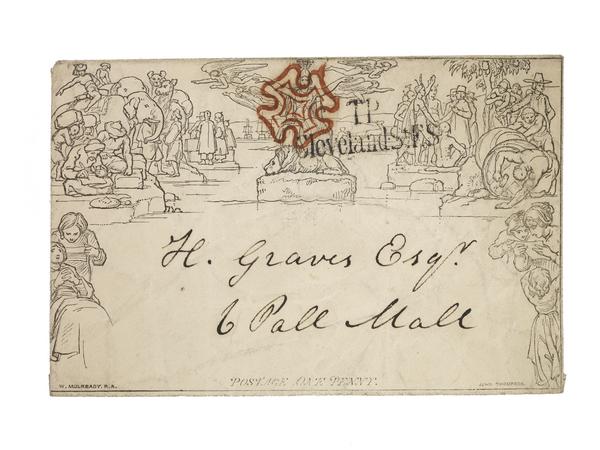 T.P
Cleveland St F.S
H. Graves Esqr.
6 Pall Mall
POSTAGE ONE PENNY.
W. MULREADY. R.A.
JOHN THOMPSON.